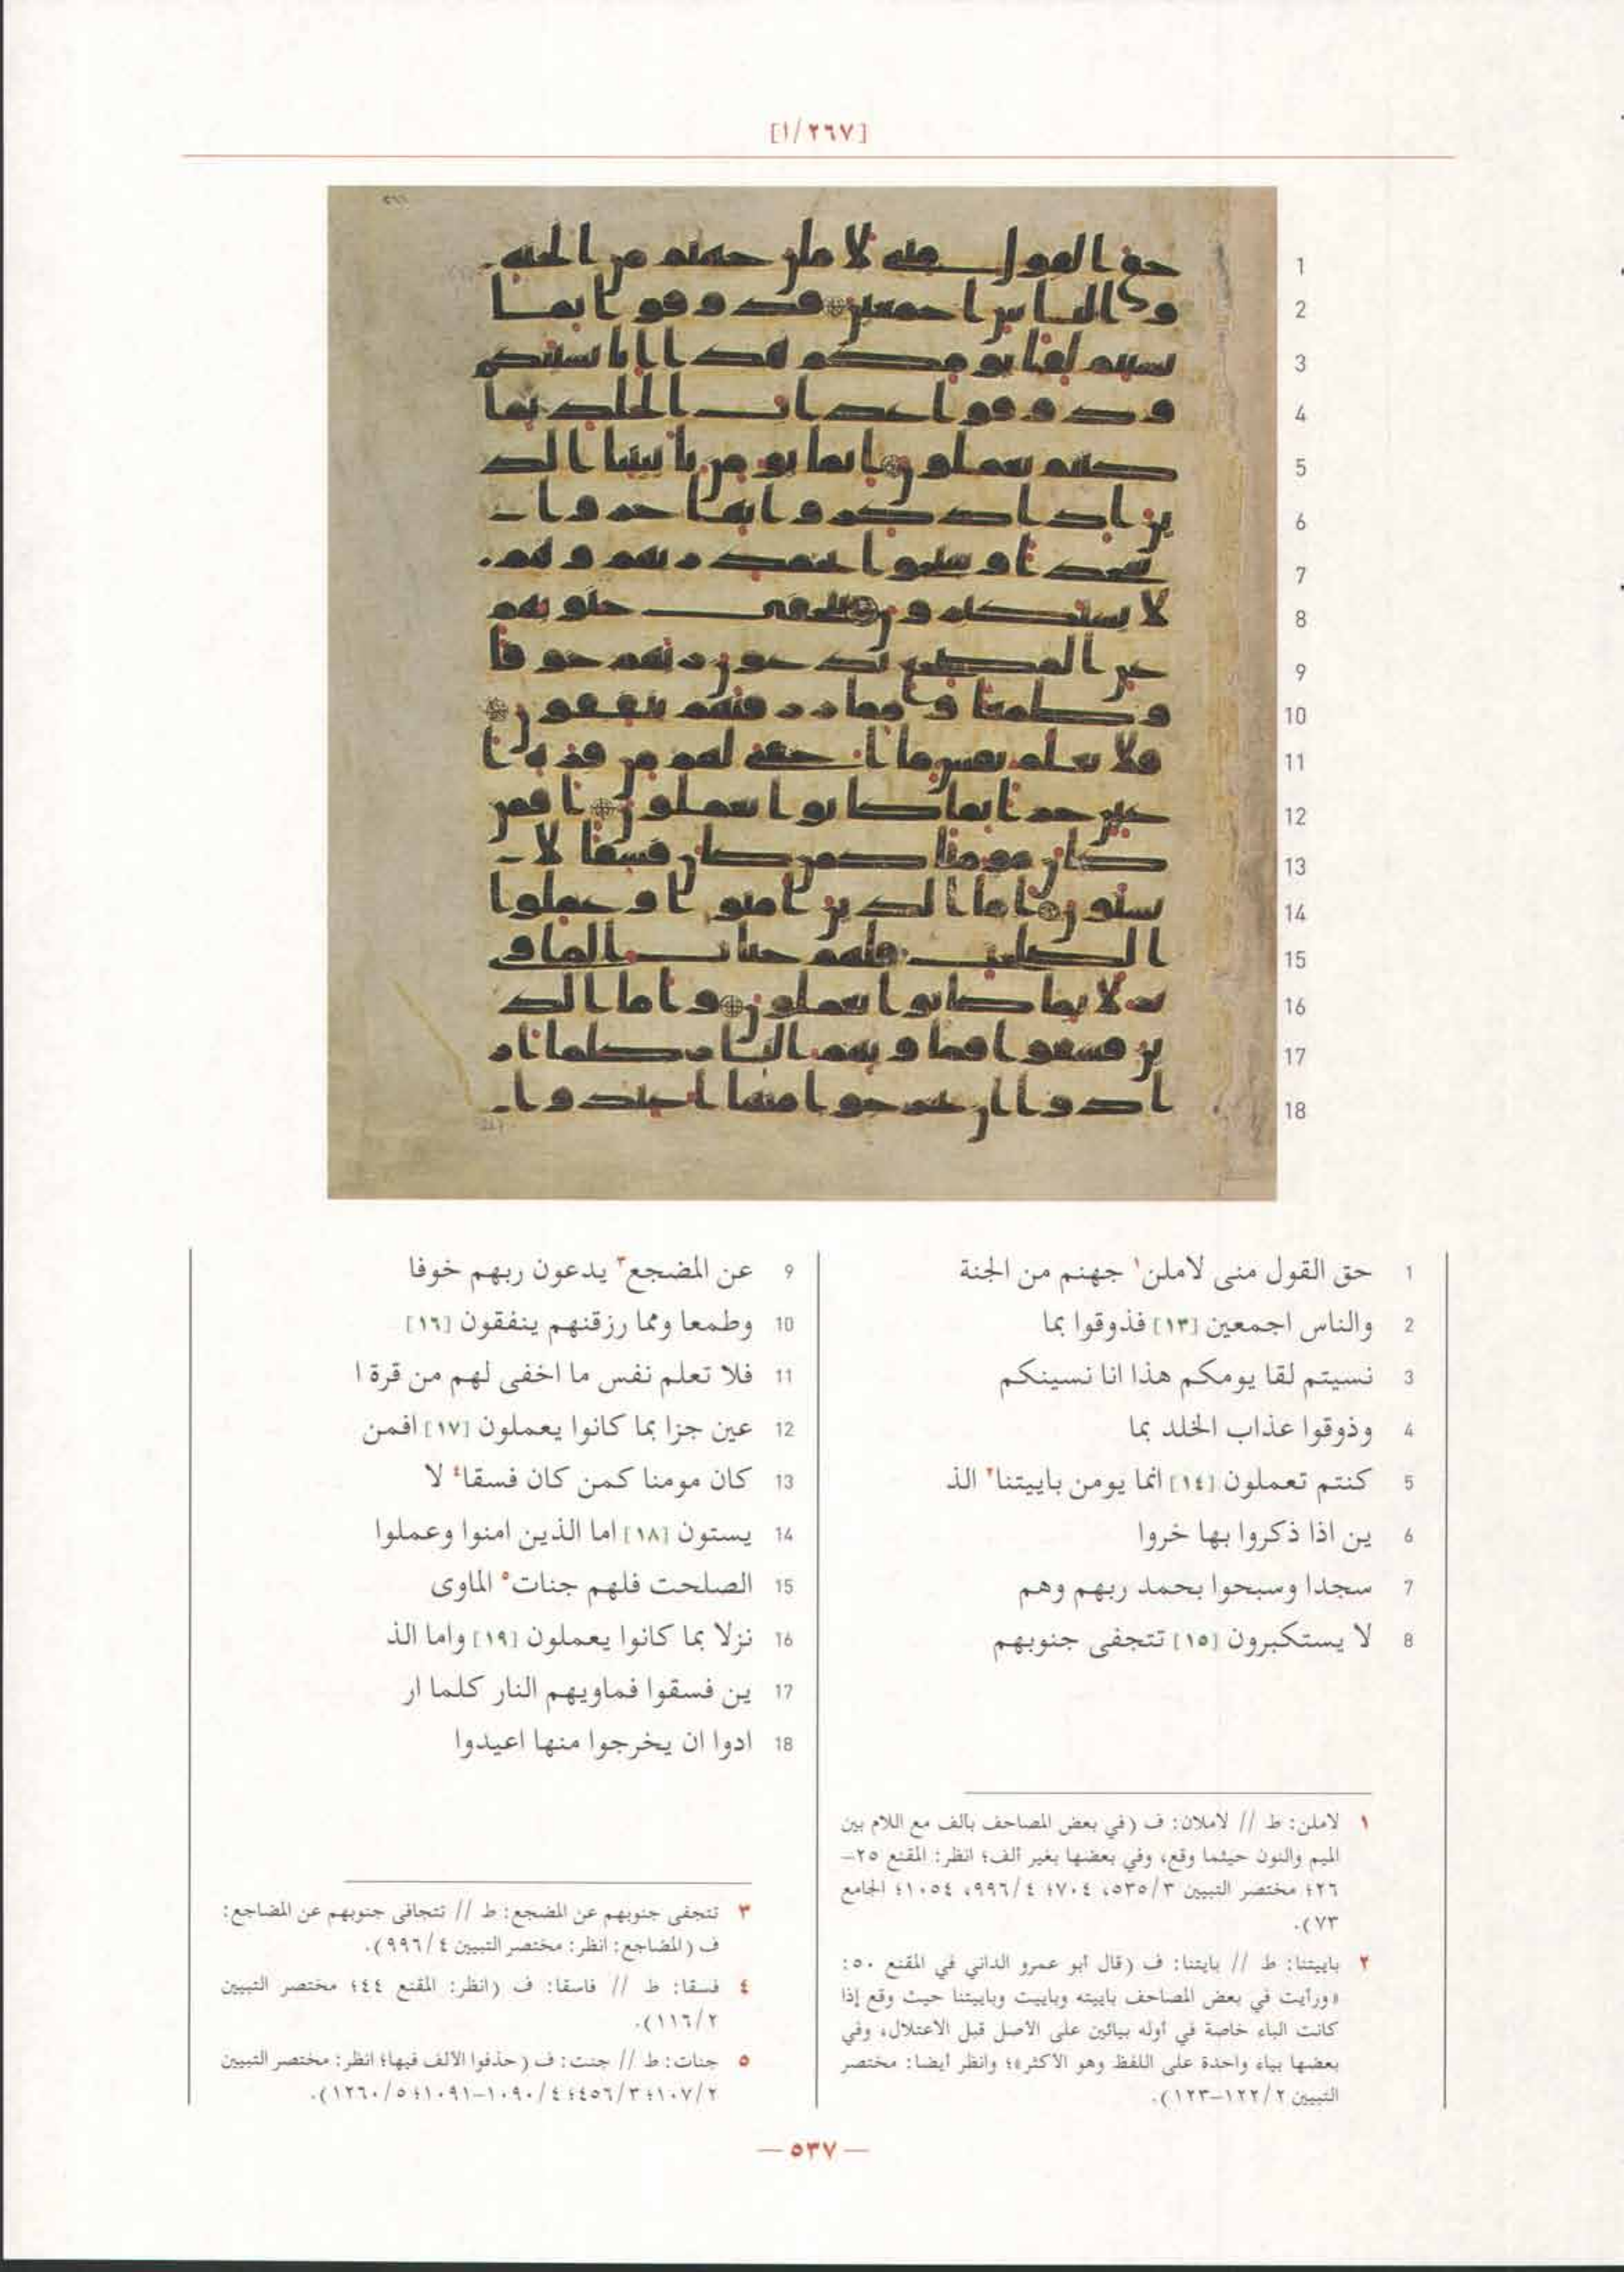 [٢٦٧/ا]
حق القول منى لاملن١ جهنم من الجنة
والناس اجمعين [١٣] فذوقوا بما
نسيتم لقا يومكم هذا انا نسينكم
وذوقوا عذاب الخلد بما
كنتم تعملون [١٤] انما يومن باييتنا٢ الذ
ين اذا ذكروا بها خروا
سجدا وسبحوا بحمد ربهم وهم
لا يستكبرون [١٥] تتجفى جنوبهم
عن المضجع٣ يدعون ربهم خوفا
وطمعا ومما رزقنهم ينفقون [١٦]
فلا تعلم نفس ما اخفى لهم من قرة ا
عين جزا بما كانوا يعملون [١٧] افمن
كان مومنا كمن كان فسقا٤ لا
يستون [١٨] اما الذين امنوا وعملوا
الصلحت فلهم جنات٥ الماوى
نزلا بما كانوا يعملون [١٩] واما الذ
ين فسقوا فماويهم النار كلما ار
ادوا ان يخرجوا منها اعيدوا
١ لاملن: ط // لاملان: ف (في بعض المصاحف بألف مع اللام بين
الميم والنون حيثما وقع، وفي بعضها بغير ألف؛ انظر: المقنع ٢٥–
٢٦؛ مختصر التبيين ٥٣٥/٣، ٧٠٤؛ ٩٩٦/٤، ١٠٥٤؛ الجامع
٧٣).
٢ باييتنا: ط // بايتنا: ف (قال أبو عمرو الداني في المقنع ٥٠:
«ورأيت في بعض المصاحف باييته وباييت وباييتنا حيث وقع إذا
كانت الباء خاصة في أوله بيائين على الاصل قبل الاعتلال، وفي
بعضها بياء واحدة على اللفظ وهو الأكثر»؛ وانظر أيضا: مختصر
التبيين ١٢٢/٢–١٢٣).
٣ تتجفى جنوبهم عن المضجع: ط // تتجافى جنوبهم عن المضاجع:
ف (المضاجع: انظر: مختصر التبيين ٩٩٦/٤).
٤ فسقا: ط // فاسقا: ف (انظر: المقنع ٤٤؛ مختصر التبيين
١١٦/٢).
٥ جنات: ط // جنت: ف (حذفوا الألف فيها؛ انظر: مختصر التبيين
١٠٧/٢؛ ٤٥٦/٣؛ ١٠٩٠/٤–١٠٩١؛ ١٢٦٠/٥).
— ٥٣٧ —